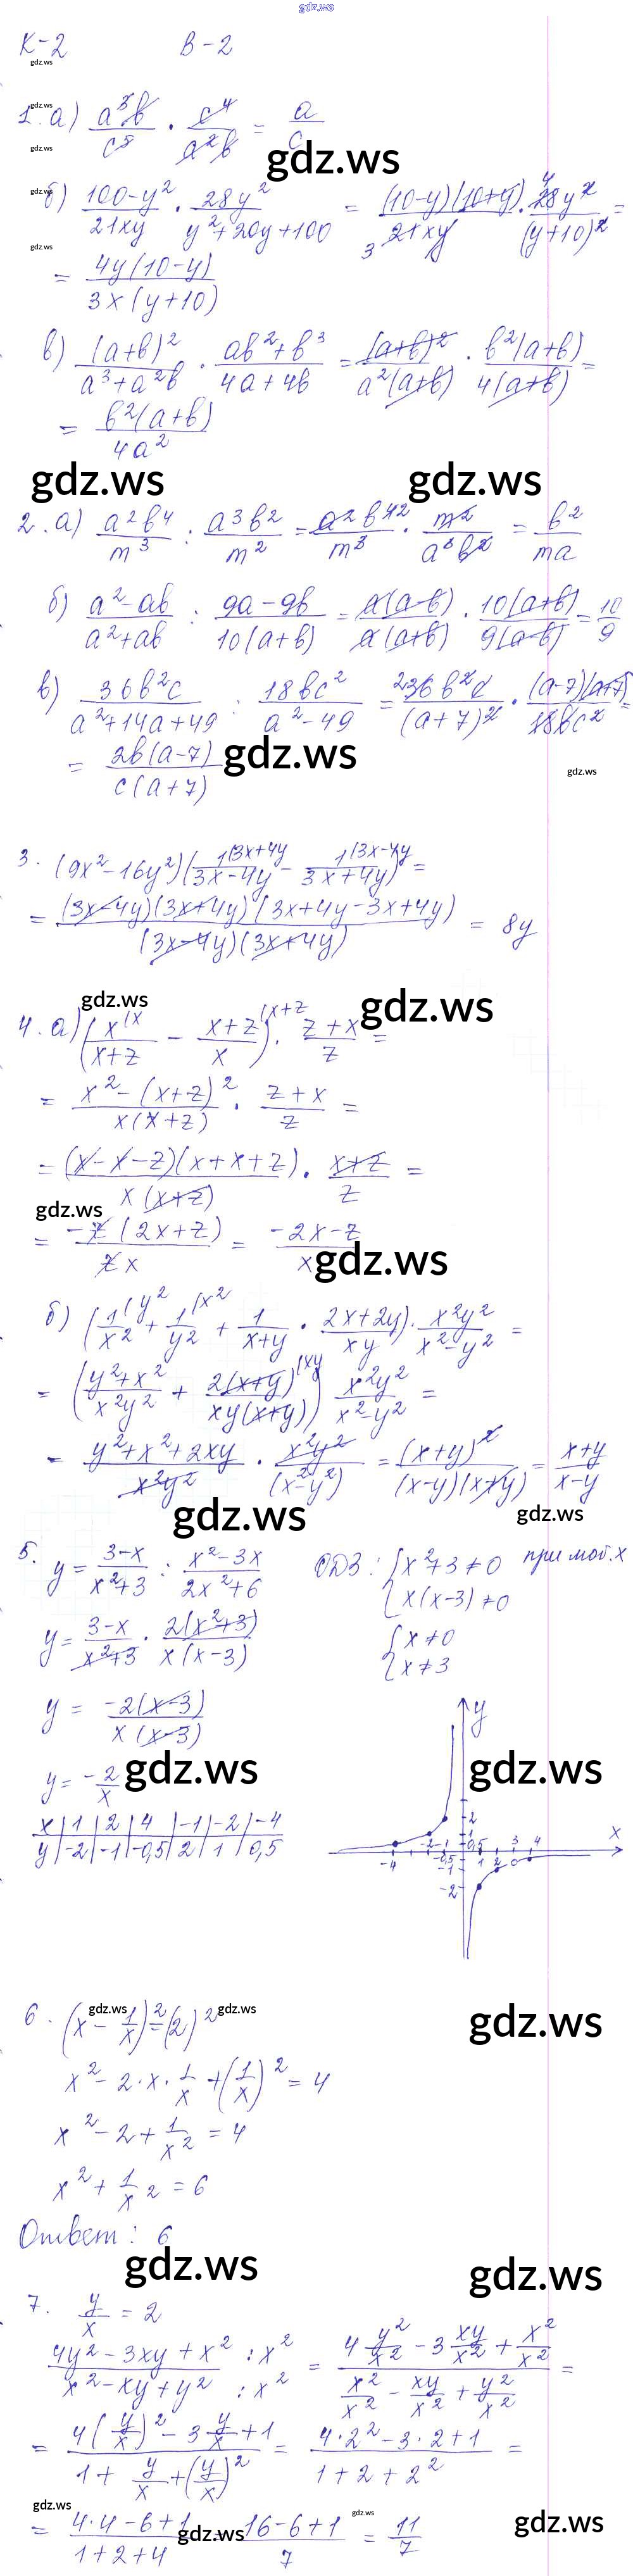 gdz.ws
К-2 В-2
gdz.ws
1. а) a³b/c⁵ · c⁴/a²b = a/c
gdz.ws
б) 100-y²/21xy · 28y²/y²+20y+100 = (10-y)(10+y)/21xy · 28y²/(y+10)² =
= 4y(10-y)/3x(y+10)
в) (a+b)²/a³+a²b · ab²+b³/4a+4b = (a+b)²/a²(a+b) · b²(a+b)/4(a+b) =
= b²(a+b)/4a²
gdz.ws gdz.ws
2. а) a²b⁴/m³ : a³b²/m² = a²b⁴/m³ · m²/a³b² = b²/ma
б) a²-ab/a²+ab : 9a-9b/10(a+b) = a(a-b)/a(a+b) · 10(a+b)/9(a-b) = 10/9
в) 36b²c/a²+14a+49 : 18bc²/a²-49 = 36b²c/(a+7)² · (a-7)(a+7)/18bc² =
= 2b(a-7)/c(a+7)
gdz.ws gdz.ws
3. (9x²-16y²)(1(3x+4y/3x-4y - 1(3x-4y/3x+4y) =
= (3x-4y)(3x+4y)(3x+4y-3x+4y)/(3x-4y)(3x+4y) = 8y
gdz.ws gdz.ws
4. а) (x(x/x+z - x+z/x)(x+z · z+x/z =
= x²-(x+z)²/x(x+z) · z+x/z =
= (x-x-z)(x+x+z)/x(x+z) · x+z/z =
gdz.ws
= -z(2x+z)/zx = -2x-z/x
gdz.ws
б) (1(y²/x² + 1(x²/y² + 1/x+y · 2x+2y/xy) · x²y²/x²-y² =
= (y²+x²/x²y² + 2(x+y)(xy/xy(x+y)) x²y²/x²-y² =
= y²+x²+2xy/x²y² · x²y²/(x²-y²) = (x+y)²/(x-y)(x+y) = x+y/x-y
gdz.ws gdz.ws
5. y = 3-x/x²+3 : x²-3x/2x²+6 ОДЗ: {x²+3≠0 при люб. x
x(x-3)≠0
y = 3-x/x²+3 · 2(x²+3)/x(x-3) {x≠0
x≠3
y = -2(x-3)/x(x-3)
y = -2/x
gdz.ws gdz.ws
x | 1 | 2 | 4 | -1 | -2 | -4
y | -2 | -1 | -0,5 | 2 | 1 | 0,5
y
2
1
0,5
x
-4 -2 -1 1 2 3 4
-0,5
-1
-2
6. (x - 1/x)² = (2)²
gdz.ws gdz.ws gdz.ws
x² - 2·x·1/x + (1/x)² = 4
x² - 2 + 1/x² = 4
x² + 1/x² = 6
Ответ: 6
gdz.ws gdz.ws
7. y/x = 2
4y²-3xy+x² :x²/x²-xy+y² :x² = 4 y²/x² - 3 xy/x² + x²/x² / x²/x² - xy/x² + y²/x² =
= 4(y/x)² - 3 y/x + 1 / 1 + y/x + (y/x)² = 4·2²-3·2+1/1+2+2² =
gdz.ws gdz.ws gdz.ws
= 4·4-6+1/1+2+4 = 16-6+1/7 = 11/7
gdz.ws